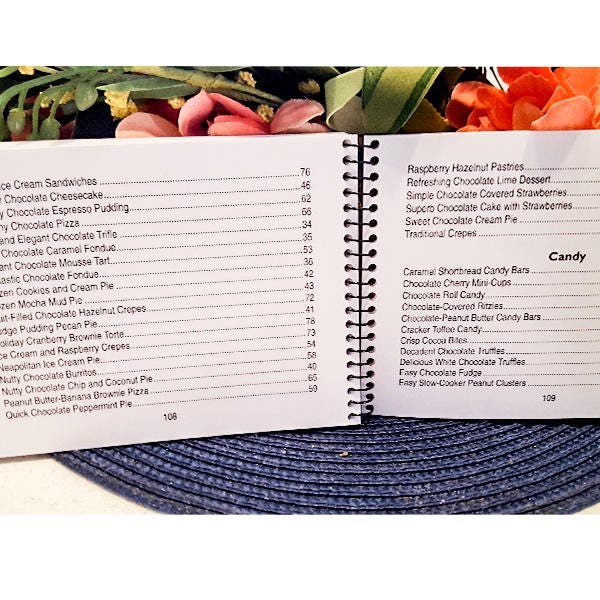 ce Cream Sandwiches 76
Chocolate Cheesecake 46
Chocolate Espresso Pudding 62
Chocolate Pizza 66
and Elegant Chocolate Trifle 34
Chocolate Caramel Fondue 35
Chocolate Mousse Tart 53
Chocolate Fondue 36
Cookies and Cream Pie 42
Mocha Mud Pie 43
uit-Filled Chocolate Hazelnut Crepes 72
udge Pudding Pecan Pie 41
oliday Cranberry Brownie Torte 78
ce Cream and Raspberry Crepes 73
Neapolitan Ice Cream Pie 54
Nutty Chocolate Burritos 58
Nutty Chocolate Chip and Coconut Pie 40
Peanut Butter-Banana Brownie Pizza 65
Quick Chocolate Peppermint Pie 59
108
Raspberry Hazelnut Pastries
Refreshing Chocolate Lime Dessert
Simple Chocolate Covered Strawberries
Superb Chocolate Cake with Strawberries
Sweet Chocolate Cream Pie
Traditional Crepes
Candy
Caramel Shortbread Candy Bars
Chocolate Cherry Mini-Cups
Chocolate Roll Candy
Chocolate-Covered Ritzies
Chocolate-Peanut Butter Candy Bars
Cracker Toffee Candy
Crisp Cocoa Bites
Decadent Chocolate Truffles
Delicious White Chocolate Truffles
Easy Chocolate Fudge
Easy Slow-Cooker Peanut Clusters
109